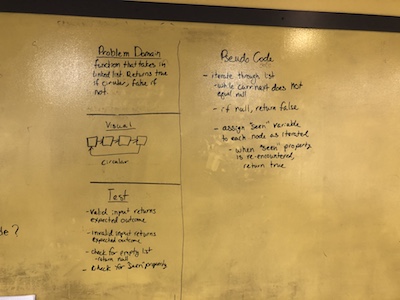 Problem Domain
function that takes in
linked list. Returns true
if circular, false if
not.
Visual
circular
Test
- Valid input returns
expected outcome
- invalid input returns
expected outcome
- check for empty list
- return null
- check for "seen" property
de?
Pseudo Code
- iterate through list
- while curr.next does not
equal null
- if null, return false
- assign "seen" variable
to each node as iterated
- when "seen" property
is re-encountered,
return true